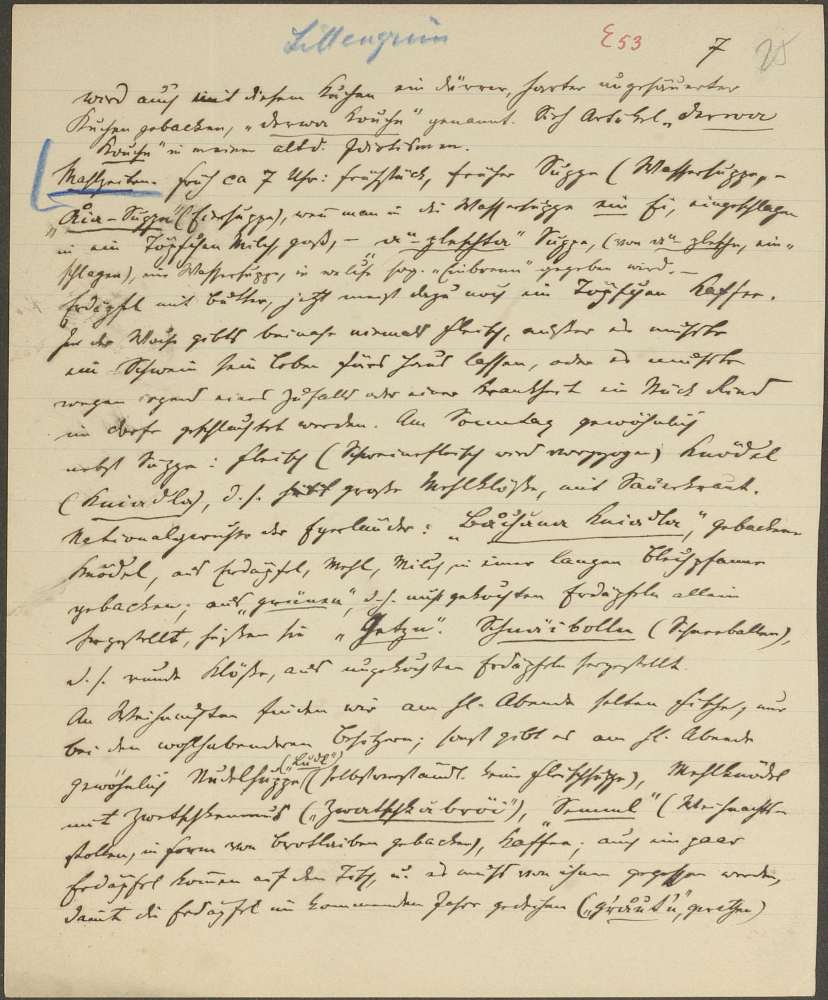 Littengrün E53 7 25
wird auch mit diesem Kuchen ein dürrer, harter ungesäuerter
Kuchen gebacken, „derwa Kouchn" genannt. Sieh Artikel „derwa
Kouchn" in meinen altd. Idiotismen.
Mahlzeiten. Früh ca 7 Uhr: Frühstück, früher Suppe (Wassersuppe, –
„Åia-Suppn" (Eiersuppe), wenn man in die Wassersuppe ein Ei, eingeschlagen
in ein Töpfchen Milch, goß, – „ei-gleschta" Suppe, (von ei-gleschn, ein-
schlagen), eine Wassersuppe, in welche sog. gegeben wird. –
Erdäpfel mit Butter, jetzt meist dazu noch ein Töpfchen Kaffee.
In der Woche gibts beinahe niemals Fleisch, außer es mußte
ein Schwein sein Leben fürs Haus lassen, oder es mußte
wegen irgend eines Zufalls oder einer Krankheit ein Stück Rind
im Dorfe geschlachtet werden. Am Sonntag gewöhnlich
nebst Suppe: Fleisch (Schweinefleisch wird vorgezogen) Knödel
(Kniadla), d. h. große Mehlklöße, mit Sauerkraut.
Nationalgerichte der Egerländer: „Båchana Kniadla", gebackene
Knödel, aus Erdäpfel, Mehl, Milch, in einer langen Blechpfanne
gebacken; aus „grünen", d. h. ungekochten Erdäpfeln allein
hergestellt, heißen sie „Getzn". Schnäibollen (Schneeballen),
d. h. runde Klöße, aus ungekochten Erdäpfeln hergestellt.
An Weihnachten finden wir am hl. Abende selten Fische, nur
bei den wohlhabenderen Besitzern; sonst gibt es am hl. Abende
gewöhnlich Nudelsuppe (selbstverständl. keine Fleischsuppe), Mehlknödel
mit Zwetschkenmus („Zwatschkabröi"), „Semml" (Weihnachts-
stollen, in Form von Brotlaiben gebacken), Kaffee; auch ein paar
Erdäpfel kommen auf den Tisch, u. es muß von ihnen gegessen werden,
damit die Erdäpfel im kommenden Jahre gedeihen („gråutn", geraten)